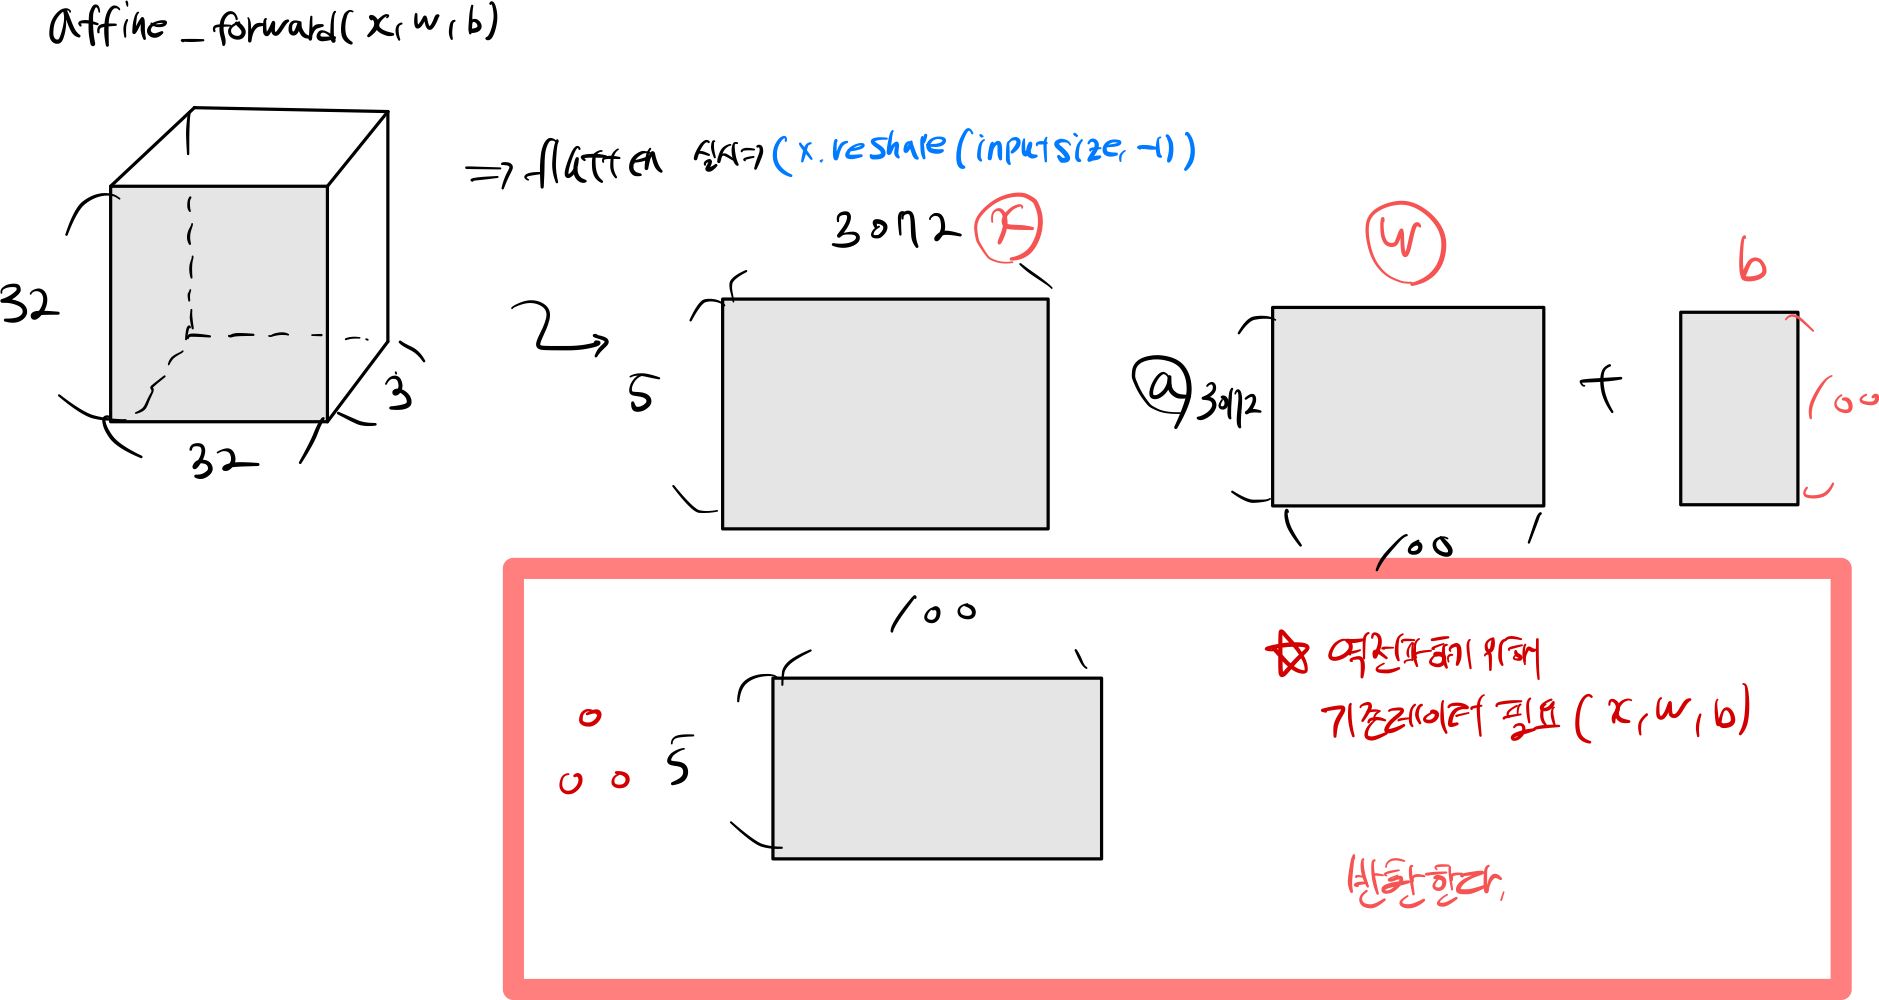 affine_forward(x, w, b)
=> flatten 실시=> (x.reshape(inputsize, -1))
3072 x
w
b
32
3
32
5
@ 3072
+
100
100
100
5
☆ 역전파하기 위해
기존데이터 필요 (x, w, b)
반환한다.